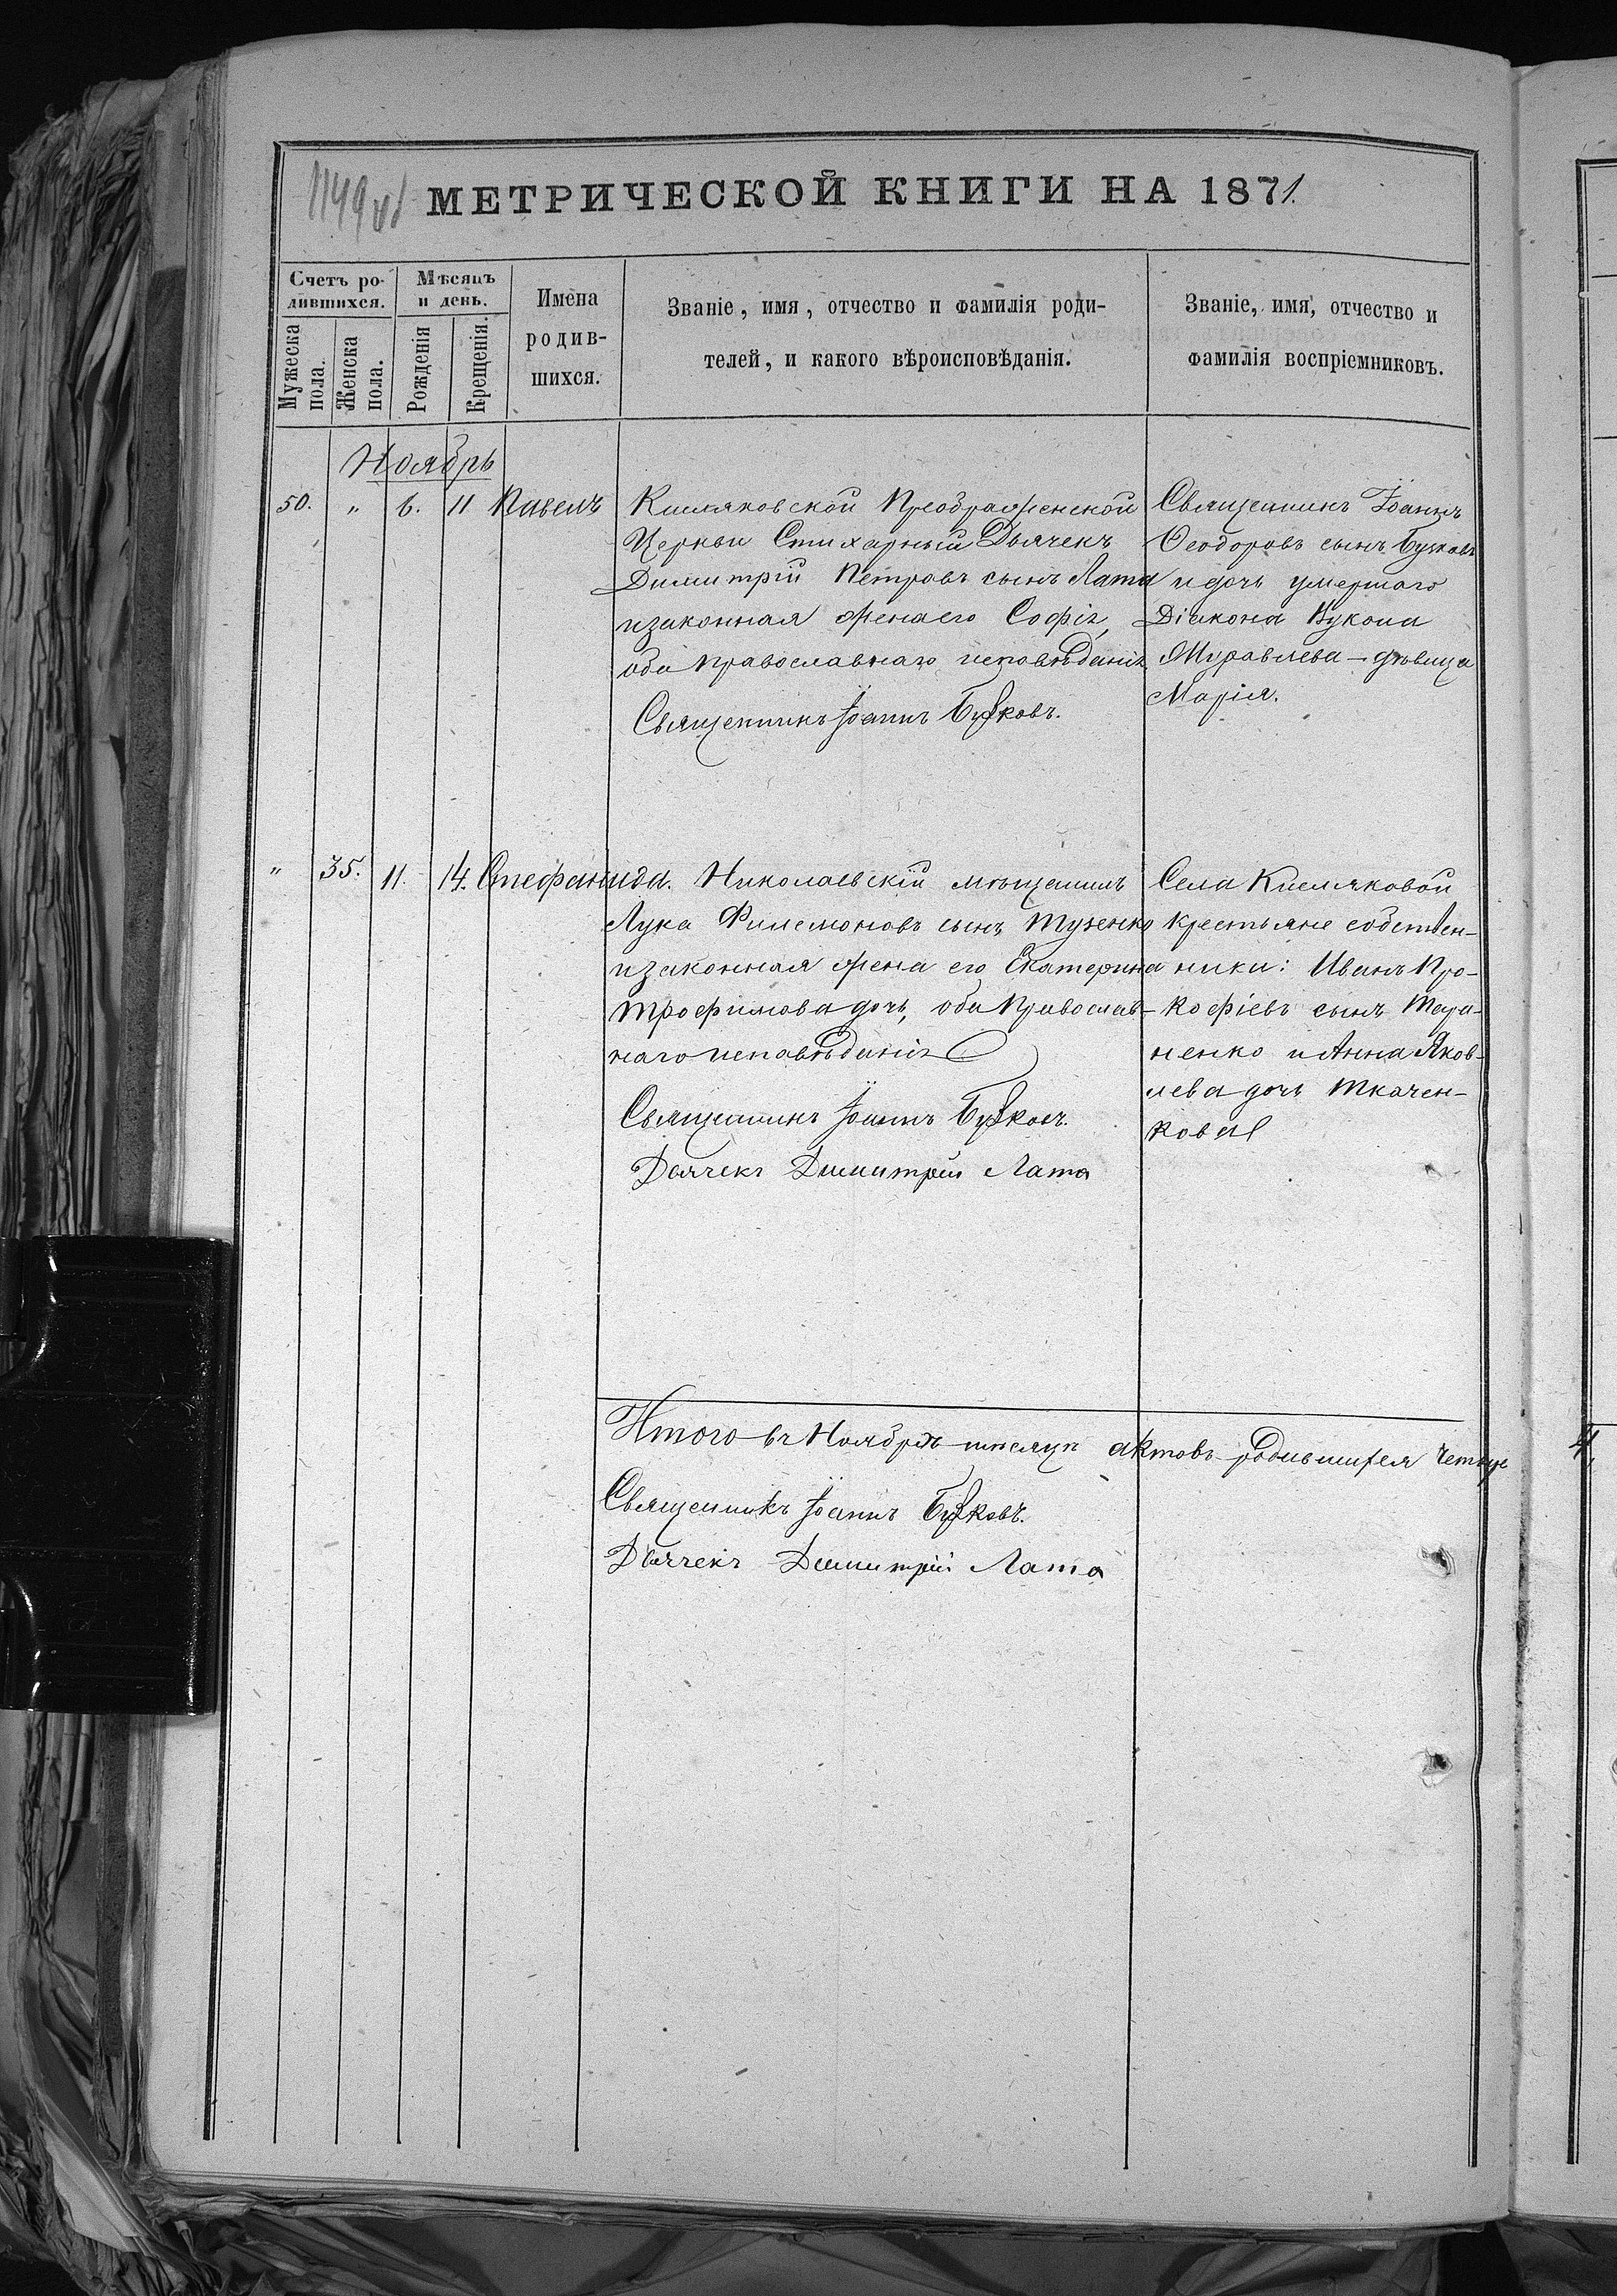 1149 об
МЕТРИЧЕСКОЙ КНИГИ НА 1871.
Счетъ ро-
дившихся.
Мужеска
пола.
Женска
пола.
Мѣсяцъ
и день.
Рожденія
Крещенія.
Имена
родив-
шихся.
Званіе, имя, отчество и фамилія роди-
телей, и какого вѣроисповѣданія.
Званіе, имя, отчество и
фамилія воспріемниковъ.
Ноябрь
50. " 6. 11 Павелъ
Кисляковской Преображенской
Церкви Стихарный Дьячекъ
Димитрій Петровъ сынъ Лата
и законная жена его Софія,
оба православнаго исповѣданія
Священникъ Іоаннъ Бужковъ.
Священникъ Іоаннъ
Ѳеодоровъ сынъ Бужковъ
и дочь умершаго
Діакона
Муравлева - дѣвица
Марія.
" 35. 11. 14. Стефанида.
Николаевскій мѣщанинъ
Лука Филемоновъ сынъ Тузенко
и законная жена его Екатерина
Трофимова дочь, оба Православ-
наго исповѣданія
Священникъ Іоаннъ Бужковъ.
Дьячекъ Димитрій Лата
Села Кисляковой
крестьяне собствен-
ники: Иванъ Про-
кофіевъ сынъ Тара-
ненко и Анна Яков-
лева дочь Ткачен-
кова
Итого въ Ноябрѣ мѣсяцѣ актовъ родившихся четыре
Священникъ Іоаннъ Бужковъ.
Дьячекъ Димитрій Лата
4.